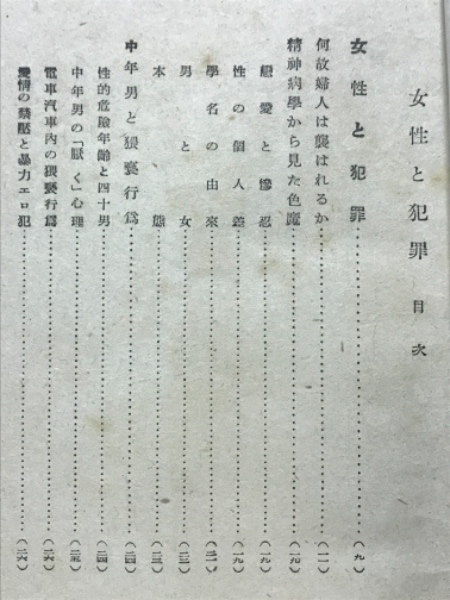 女性と犯罪 目次
女性と犯罪……(九)
何故婦人は襲はれるか……(一一)
精神病學から見た色魔……(一九)
戀愛と慘忍……(一九)
性の個人差……(一九)
學名の由來……(二一)
男と女……(二二)
本態……(二三)
中年男と猥褻行爲……(二四)
性的危險年齡と四十男……(二四)
中年男の「厭く」心理……(二五)
電車汽車內の猥褻行爲……(二六)
愛情の禁壓と暴力エロ犯……(二六)